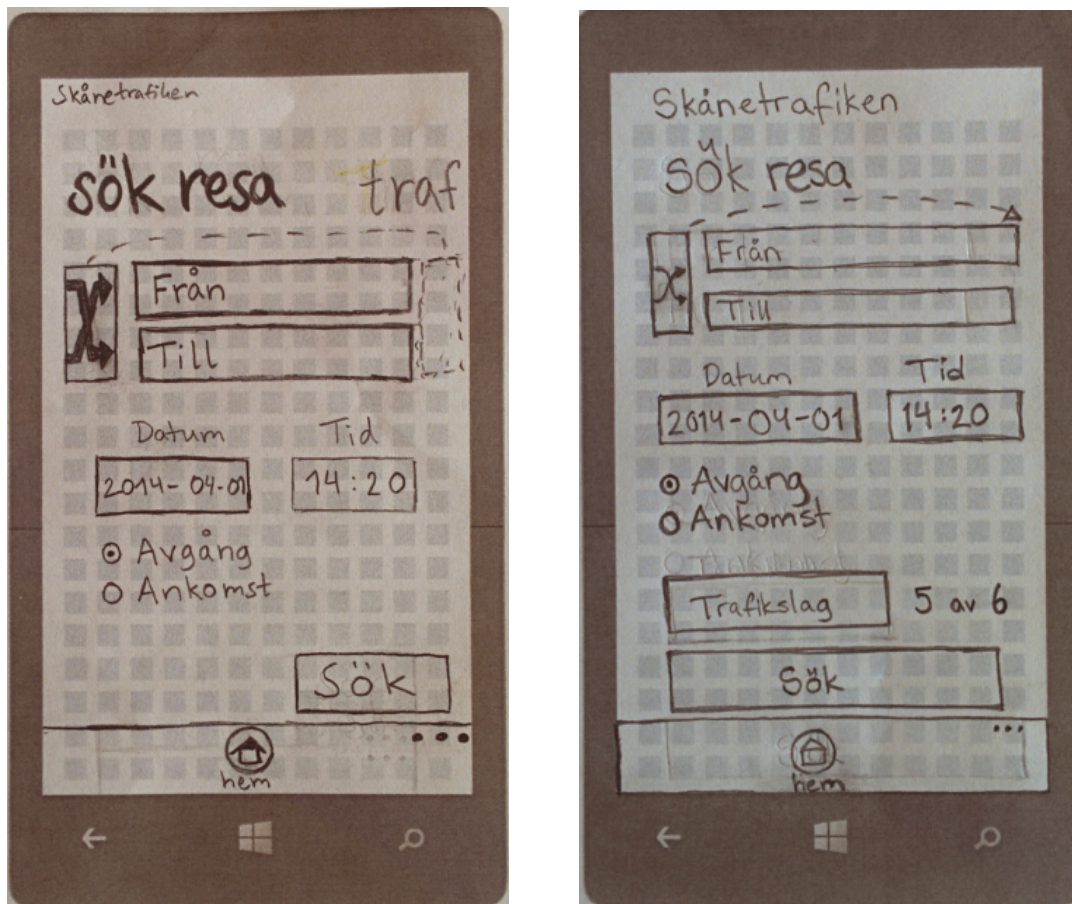 Skånetrafiken
sök resa traf
Från
Till
Datum Tid
2014-04-01 14:20
Avgång
Ankomst
Sök
hem
Skånetrafiken
Sök resa
Från
Till
Datum Tid
2014-04-01 14:20
Avgång
Ankomst
Ankomst
Trafikslag 5 av 6
Sök
hem